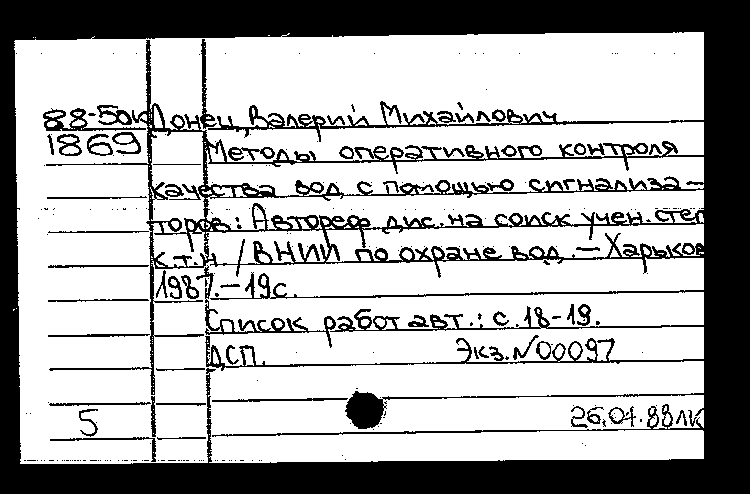 88-50к Донец, Валерий Михайлович
1869 Методы оперативного контроля
качества вод с помощью сигнализа-
торов: Автореф дис. на соиск учен. степ
к.т.н. / ВНИИ по охране вод. — Харьков
1987. - 19с.
Список работ авт.: с. 18-19.
ДСП. Экз. N 00097
5 26.01.88лк